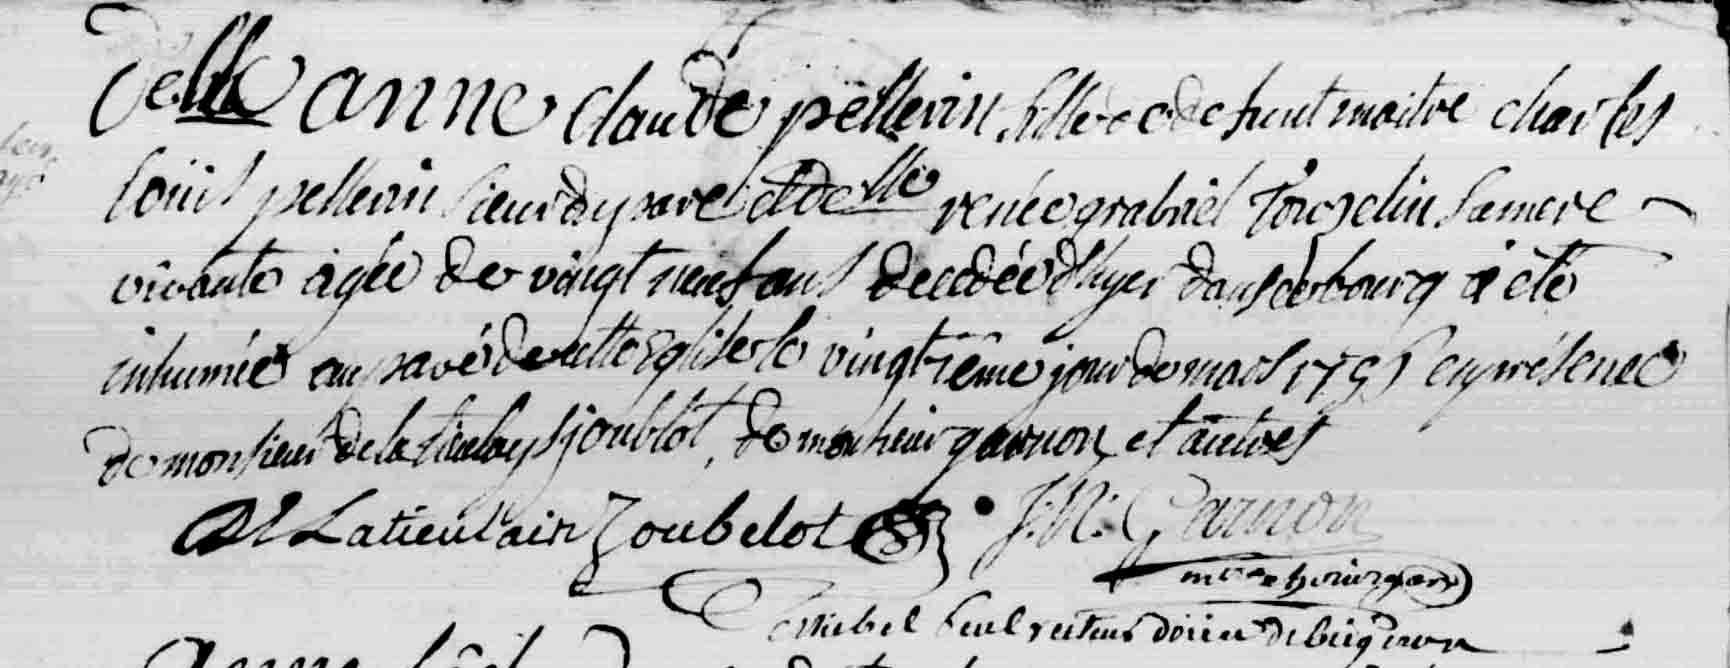 Delle anne Claude pellerin fille de defunt maitre charles
louis pellerin sieur du parc et delle renée grabriel Tourzelin sa mere
vivante agée de vingt neuf ans decedée d'hyer dans ce bourg a été
inhumée au pavé de cette Eglise le vingtième jour de mars en présence
de monsieur de la joublot, de monsieur garnon et autres
Latieulair Joubelot J: N: Garnon
mtre chirurgien
recteur doien